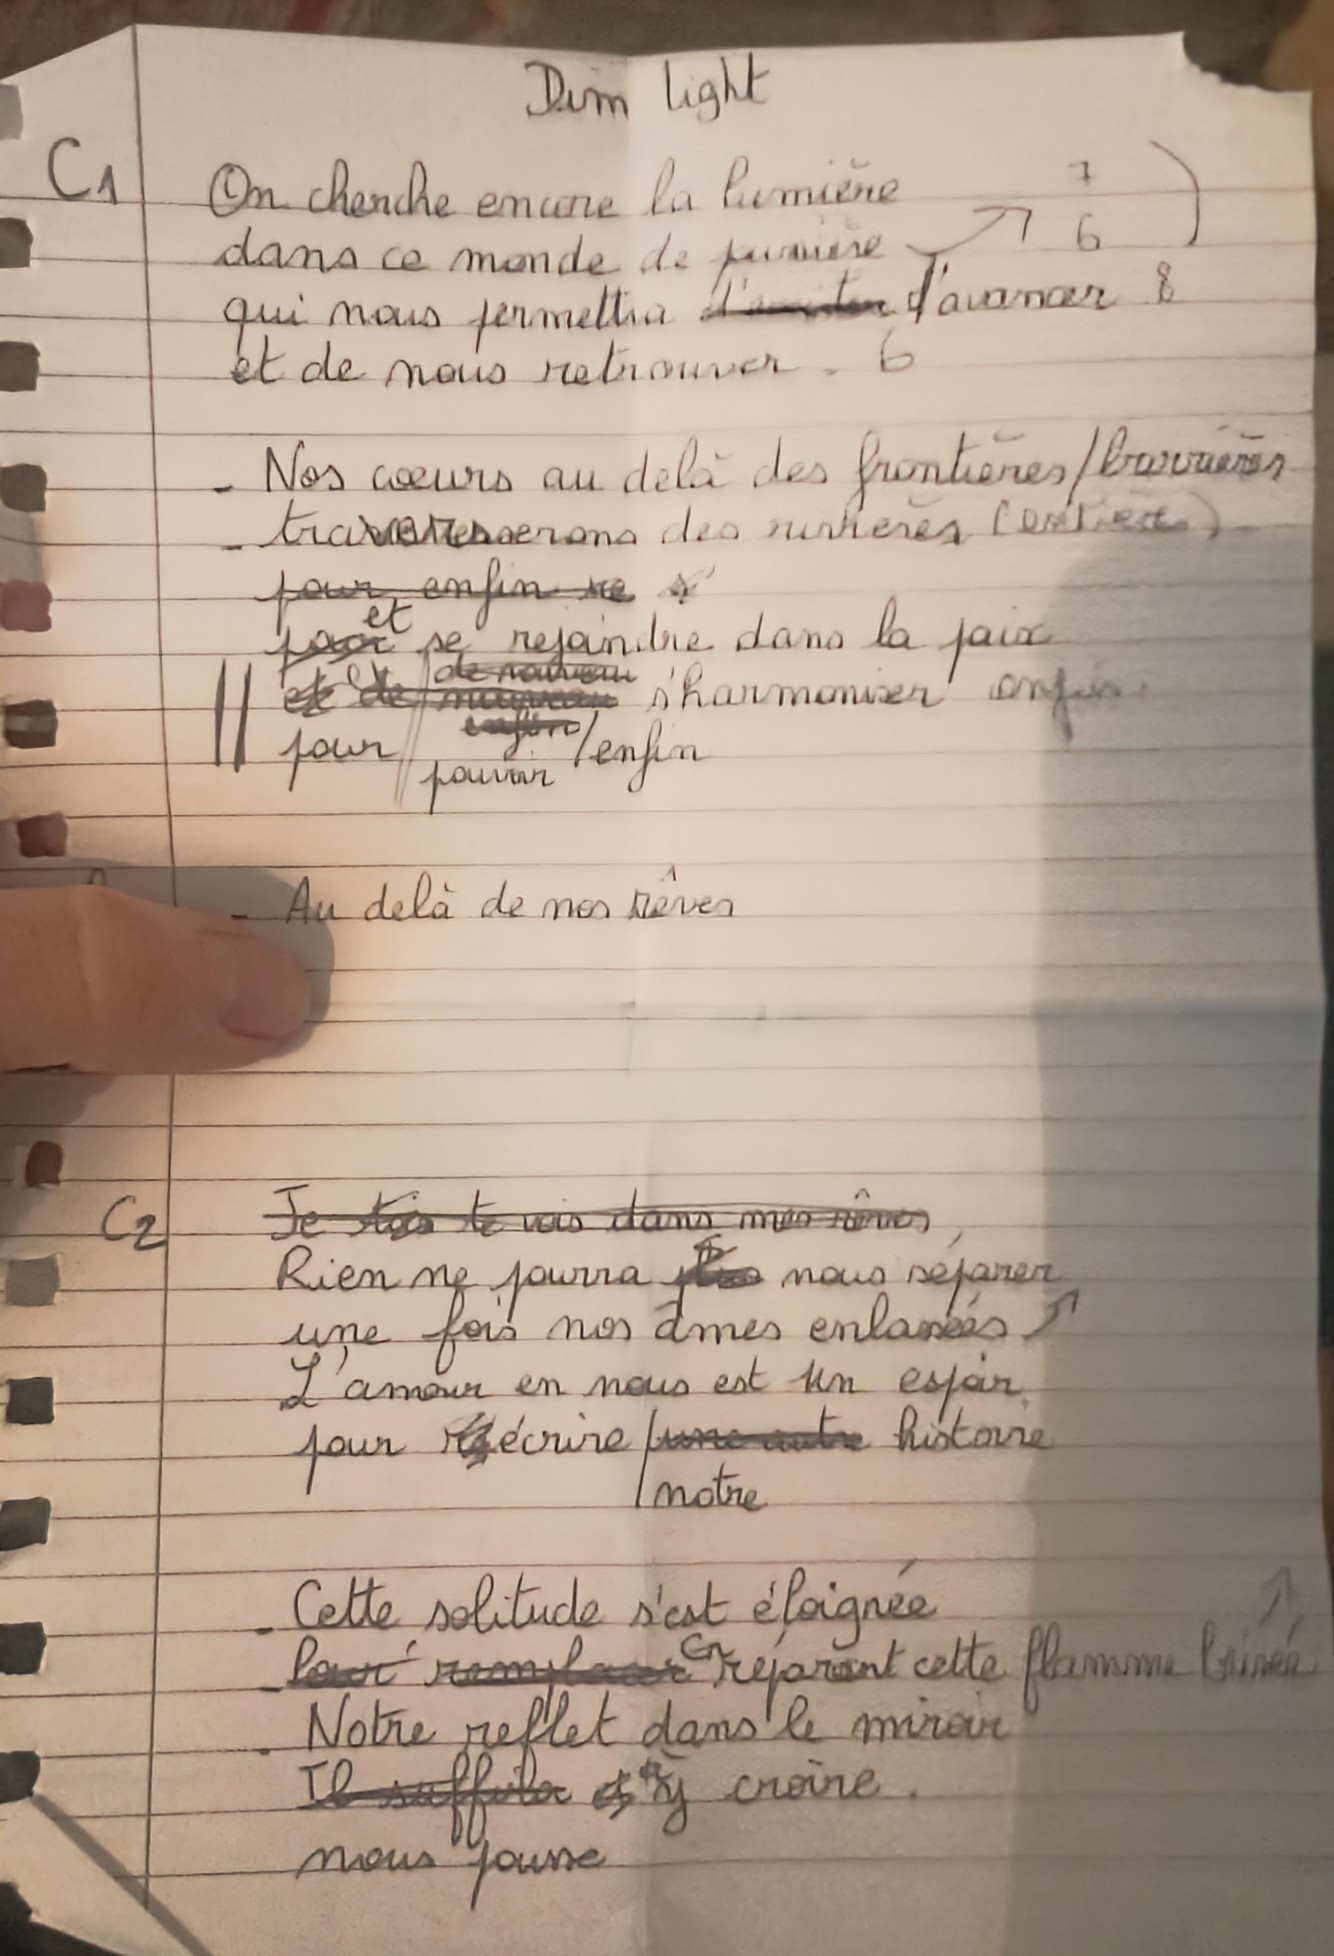 Dim light
C1 On cherche encore la lumière 7
dans ce monde de 6
qui nous permettra d'avancer 8
et de nous retrouver. 6
- Nos cœurs au delà des frontières/barrières
- traverserons des rivières
pour enfin re
pour et se rejoindre dans la paix
de nouveau
et de nouveau s'harmoniser enfin
enfin
pour pouvoir /enfin
- Au delà de nos rêves
C2 Je te vois dans mes rêves
Rien ne pourra nous séparer
une fois nos âmes enlacées
L'amour en nous est un espoir
pour écrire / une autre histoire
/ notre
- Cette solitude s'est éloignée
- Pour remplacer en réparant cette flamme brisée
. Notre reflet dans le miroir
Il suffira à y croire.
nous pousse